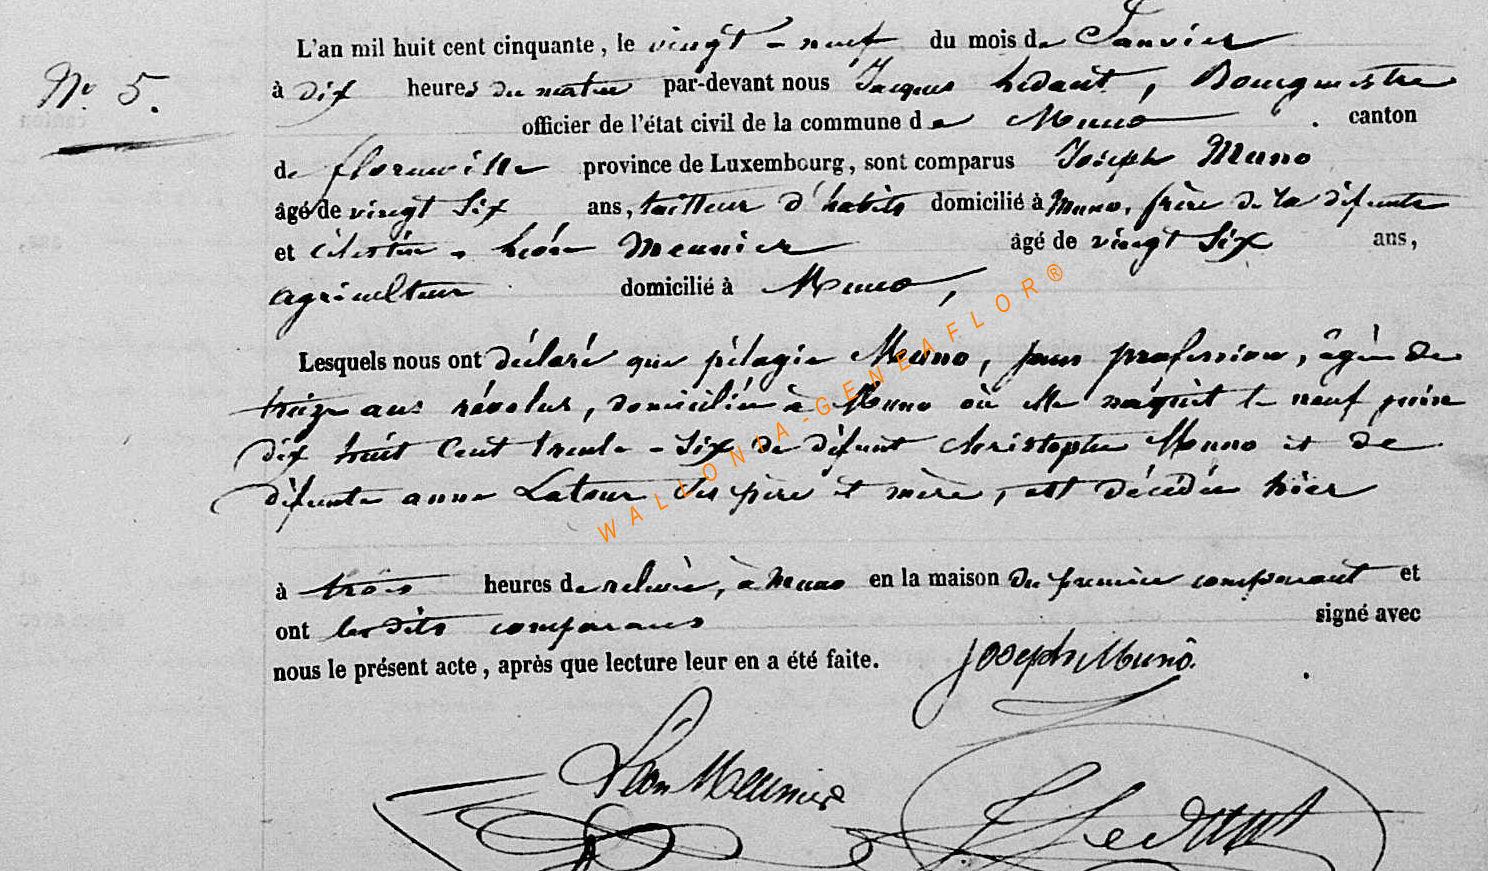 L'an mil huit cent cinquante, le vingt-neuf du mois de Janvier
N° 5.
à dix heures du matin par-devant nous Jacques Hedant, Bourgmestre
officier de l'état civil de la commune de Muno canton
de florenville province de Luxembourg, sont comparus Joseph Muno
âgé de vingt Six ans, tailleur d'habits domicilié à Muno, frère de la défunte
et célestin-Léon Meunier âgé de vingt Six ans,
agriculteur domicilié à Muno,
Lesquels nous ont déclaré que pélagie Muno, sans profession, âgée de
treize ans révolus, domiciliée à Muno où elle naquit le neuf juin
dix huit Cent trente-Six de défunt christophe Muno et de
défunte anne Latour ses père et mère, est décédée hier
à trois heures de relevée, à Muno en la maison du premier comparant et
ont lesdits comparans signé avec
nous le présent acte, après que lecture leur en a été faite. Joseph Muno.
Léon Meunier
WALLONIA-GENEAFLOR®